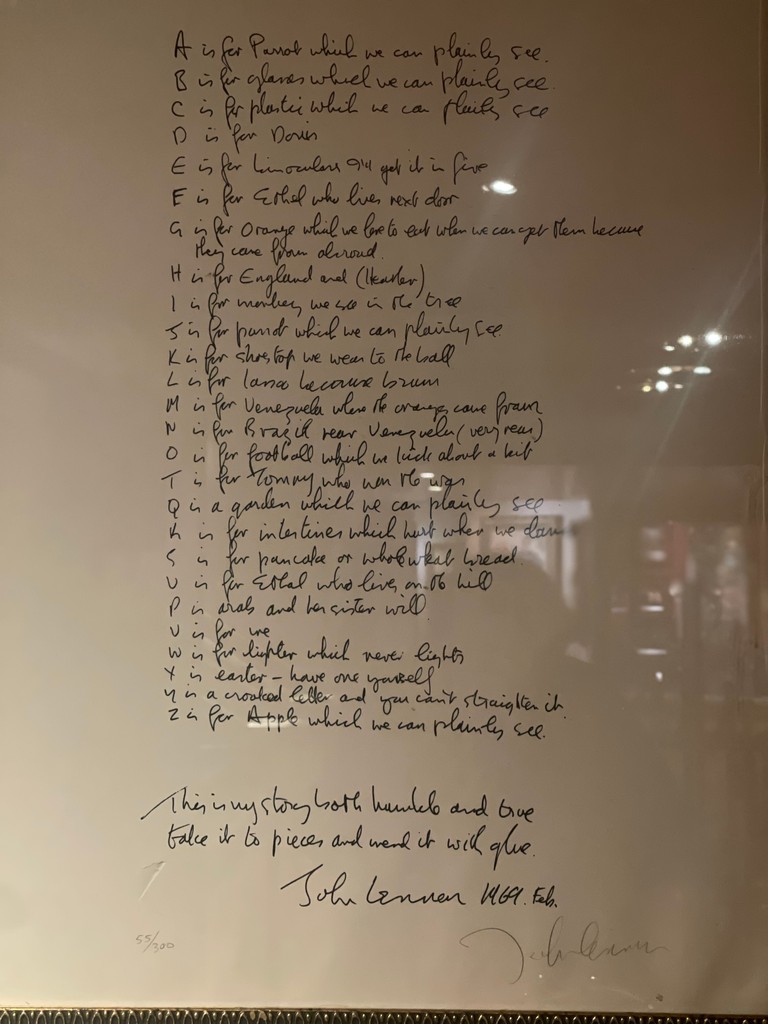 A is for Parrot which we can plainly see.
B is for glasses which we can plainly see.
C is for plastic which we can plainly see
D is for Doris
E is for binoculars I'll get it in five
F is for Ethel who lives next door
G is for Orange which we love to eat when we can get them because
they come from abroad.
H is for England and (Heather)
I is for monkey we see in the tree
J is for parrot which we can plainly see.
K is for shoetop we wear to the ball
L is for lance because brum
M is for Venezuela where the oranges come from
N is for Brazil near Venezuela (very near)
O is for football which we kick about a bit
T is for Tommy who won the war
Q is a garden which we can plainly see
R is for intestines which hurt when we dance
S is for pancake or wholewheat bread.
U is for Ethel who lives on the hill
P is arab and her sister will.
V is for me
W is for lighter which never lights
X is easter - have one yourself
Y is a crooked letter and you can't straighten it.
Z is for Apple which we can plainly see.
This is my story both humble and true
take it to pieces and mend it with glue.
John Lennon 1969. Feb.
55/300
John Lennon